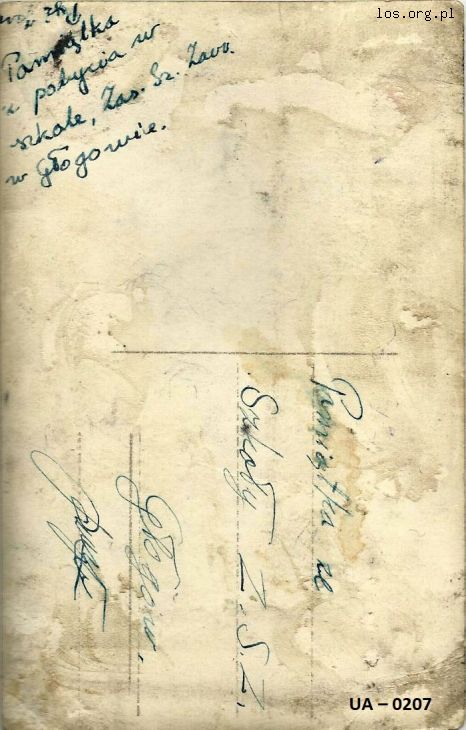 los.org.pl
Pamiątka
z pobycia w
szkole, Zas. Sz. Zaw.
w Głogowie.
Pamiątka ze
Szkoły Z.S.Z.
Głogów.
UA – 0207